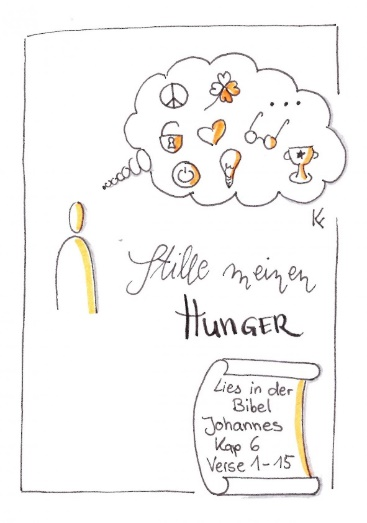 ...
K
Stille meinen
HUNGER
Lies in der
Bibel
Johannes
Kap 6
Verse 1-15